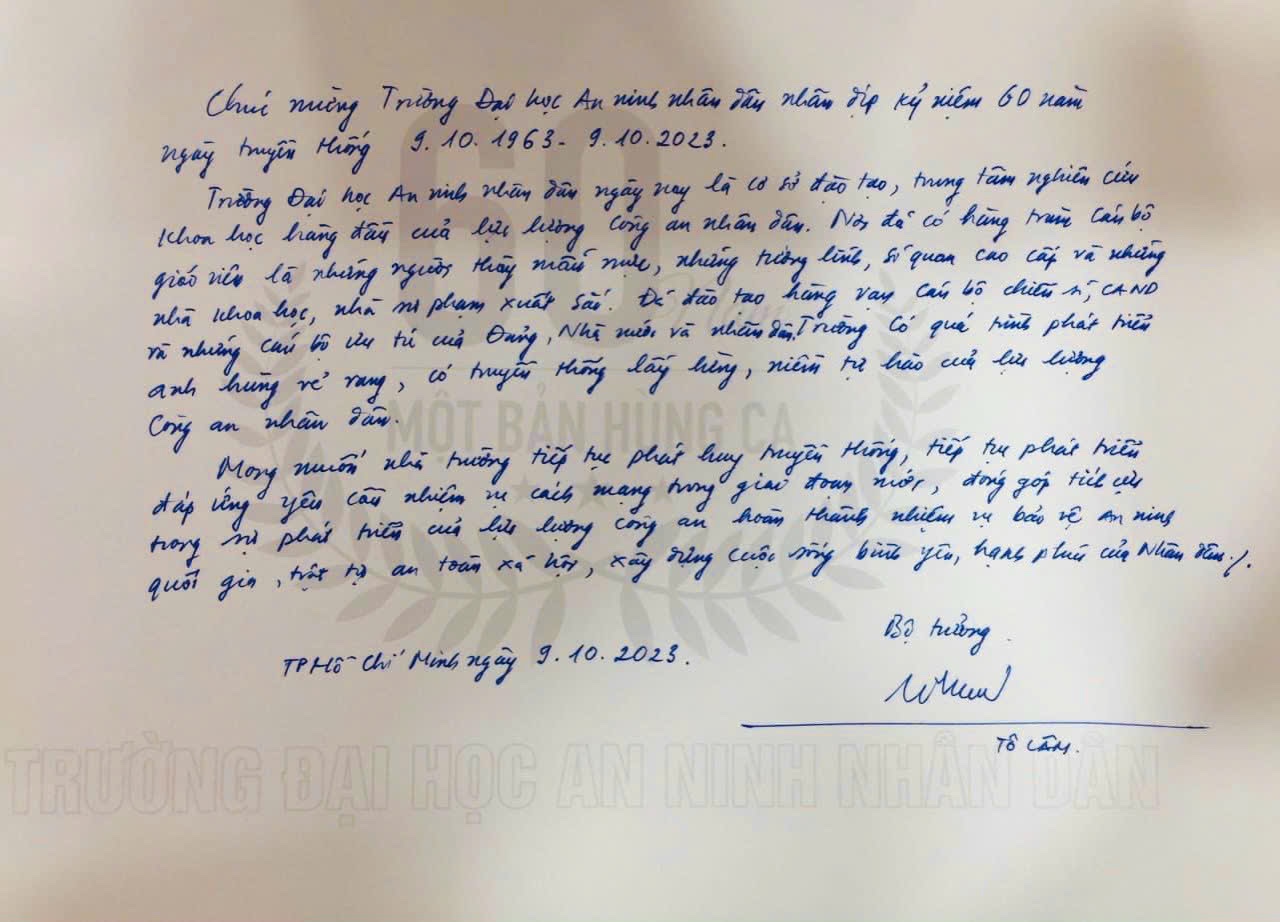 Chúc mừng Trường Đại học An ninh nhân dân nhân dịp kỷ niệm 60 năm
ngày truyền thống 9.10.1963- 9.10.2023.
Trường Đại học An ninh nhân dân ngày nay là cơ sở đào tạo, trung tâm nghiên cứu
khoa học hàng đầu của lực lượng Công an nhân dân. Nơi đã có hàng trăm cán bộ
giáo viên là những người thầy mẫu mực, những tướng lĩnh, sĩ quan cao cấp và những
nhà khoa học, nhà sư phạm xuất sắc. Đã đào tạo hàng vạn cán bộ chiến sĩ, CAND
và những cán bộ ưu tú của Đảng, Nhà nước và nhân dân. Trường có quá trình phát triển
anh hùng vẻ vang, có truyền thống lẫy lừng, niềm tự hào của lực lượng
Công an nhân dân.
Mong muốn nhà trường tiếp tục phát huy truyền thống, tiếp tục phát triển
đáp ứng yêu cầu nhiệm vụ cách mạng trong giai đoạn mới, đóng góp tích cực
trong sự phát triển của lực lượng công an hoàn thành nhiệm vụ bảo vệ An ninh
quốc gia, trật tự an toàn xã hội, xây dựng cuộc sống bình yên, hạnh phúc của Nhân dân./.
Bộ trưởng
TP Hồ Chí Minh ngày 9.10.2023.
Tô Lâm.
60
Năm
MỘT BẢN HÙNG CA
TRƯỜNG ĐẠI HỌC AN NINH NHÂN DÂN